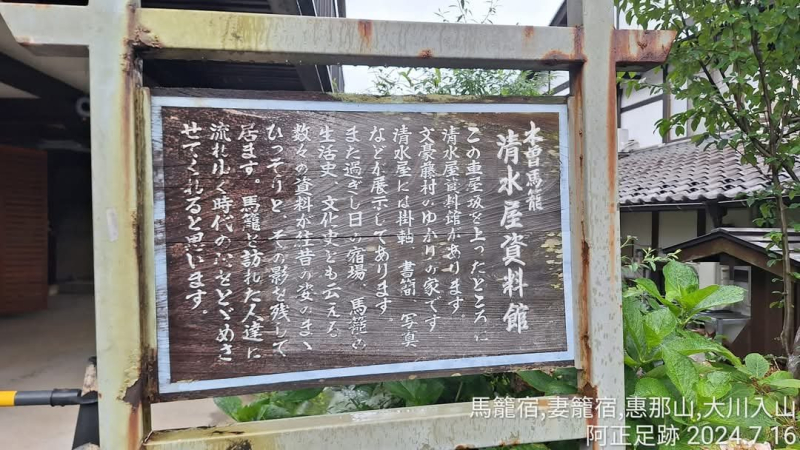 木曽馬籠
清水屋資料館
この車屋坂を上ったところに
清水屋資料館があります。
文豪藤村のゆかりの家です
清水屋には掛軸 書簡 写真
などが展示してあります。
また過ぎし日の宿場、馬籠の
生活史、文化史とも云える
数々の資料が往昔の姿のまゝ
ひっそりと、その影を残して
居ます。馬籠を訪れた人達に
流れゆく時代の心をとゞめさ
せてくれると思います。
馬籠宿,妻籠宿,惠那山,大川入山
阿正足跡 2024.7.16